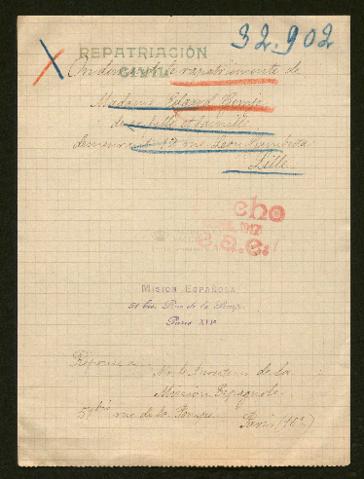 32.902
REPATRIACIÓN
CIVIL
On demande le rapatriement de
Madame Edard
de sa fille et famille
demeurant rue Léon Gambetta
Lille
cho
1917
e.a.c.
MISION ESPAÑOLA
51 bis, Rue de la Pompe
Paris XVIe
Réponse à
Mr le Directeur de la
Mission Espagnole
51 bis rue de la Pompe Paris (16e)